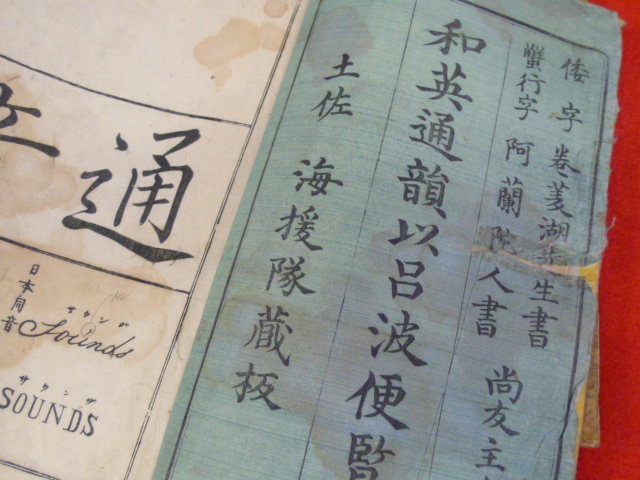 倭字 巻菱湖先生書
蟹行字 阿蘭陀人書 尚友主
和英通韻以呂波便覧
土佐 海援隊蔵板
通
日本同音
サウンヅ
Sounds
サウンヅ
SOUNDS